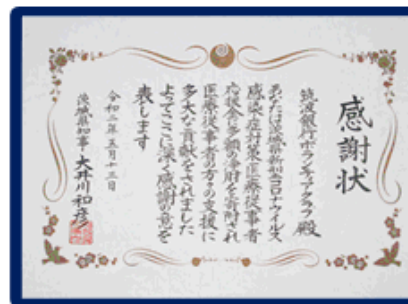 感謝状
筑波銀行ボランティアクラブ 殿
あなたは茨城県新型コロナウイルス
感染症対策医療従事者
応援金に多額の金財を寄附され
医療従事者の方々の支援に
多大な貢献をされました
よってここに深く感謝の意を
表します
令和二年五月十三日
茨城県知事 大井川和彦